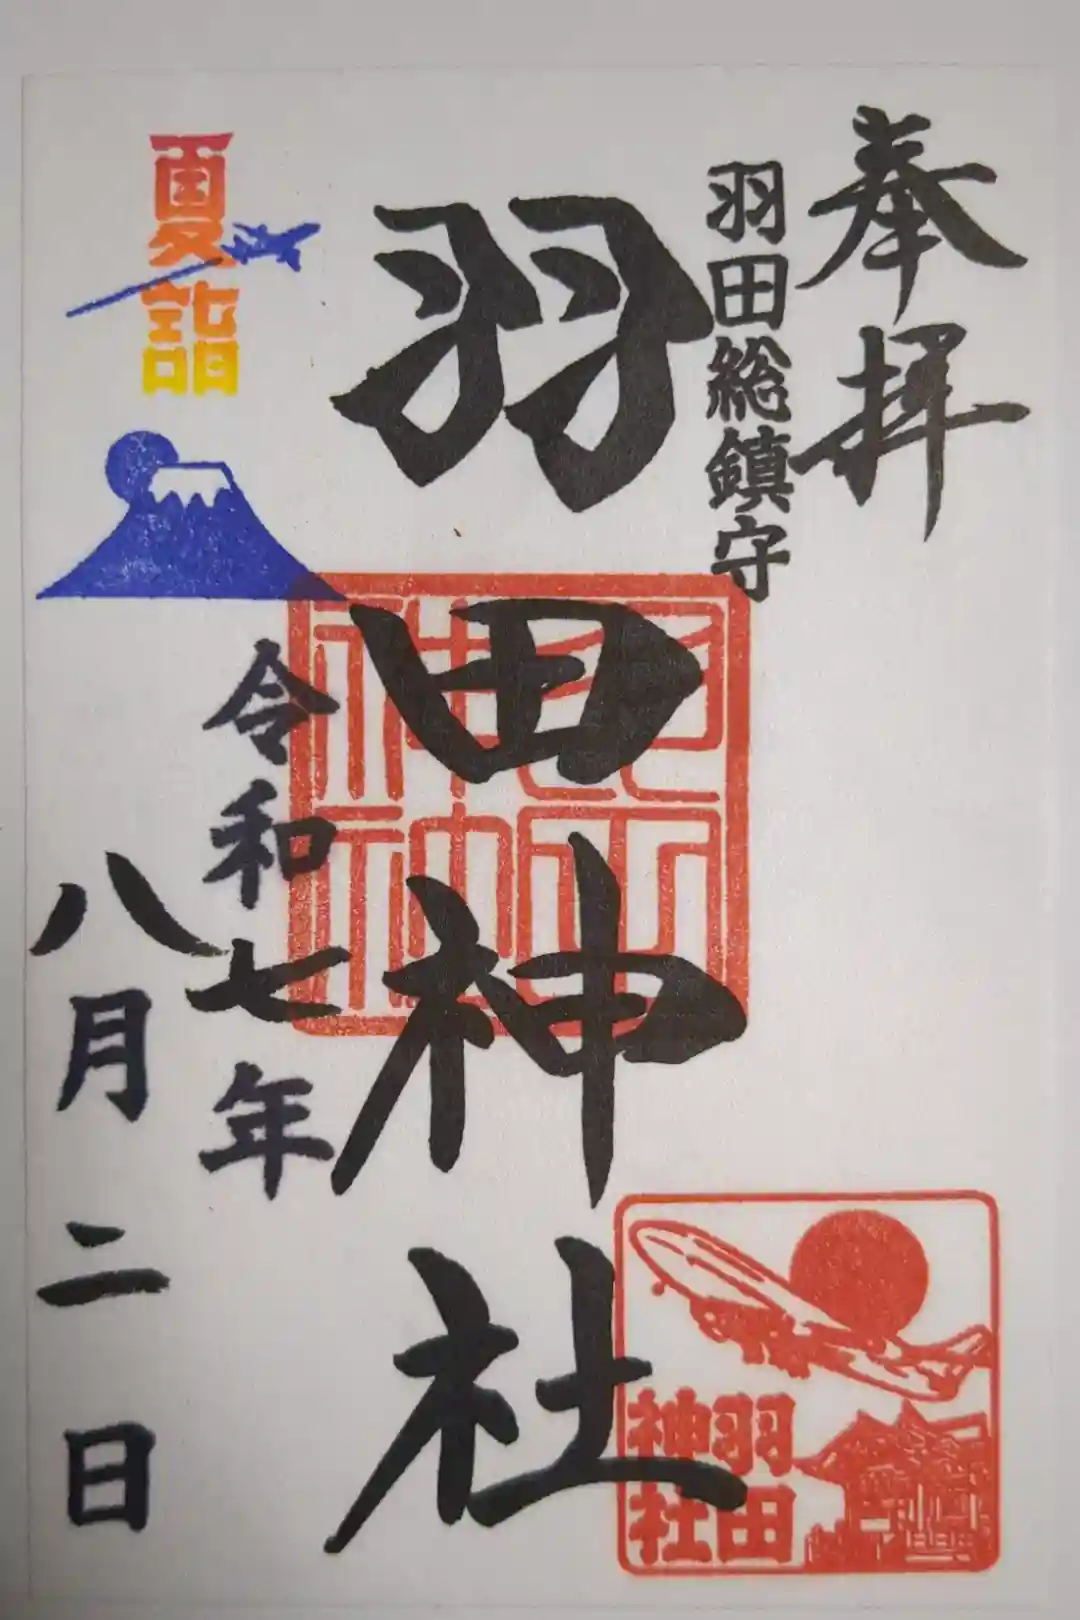 奉拝
羽田総鎮守
羽田神社
夏詣
令和七年
八月二日
羽田
神社
羽田
神社